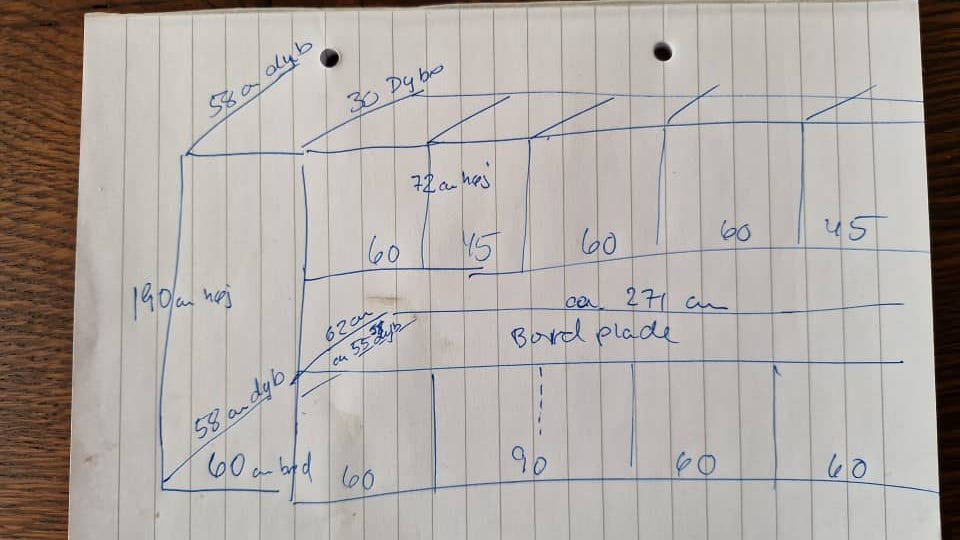 58 cm dyb
30 Dybe
72 cm høj
60 45 60 60 45
190 cm høj
ca 271 cm
62 cm
Bord plade
58 cm dyb
60 cm bred
60 90 60 60